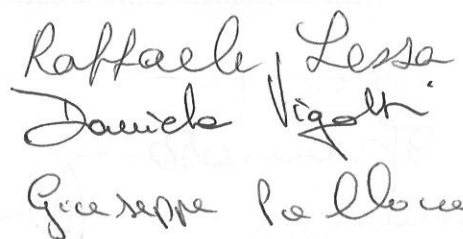 Raffaele Lessa
Daniele Vigotti
Giuseppe Pallone